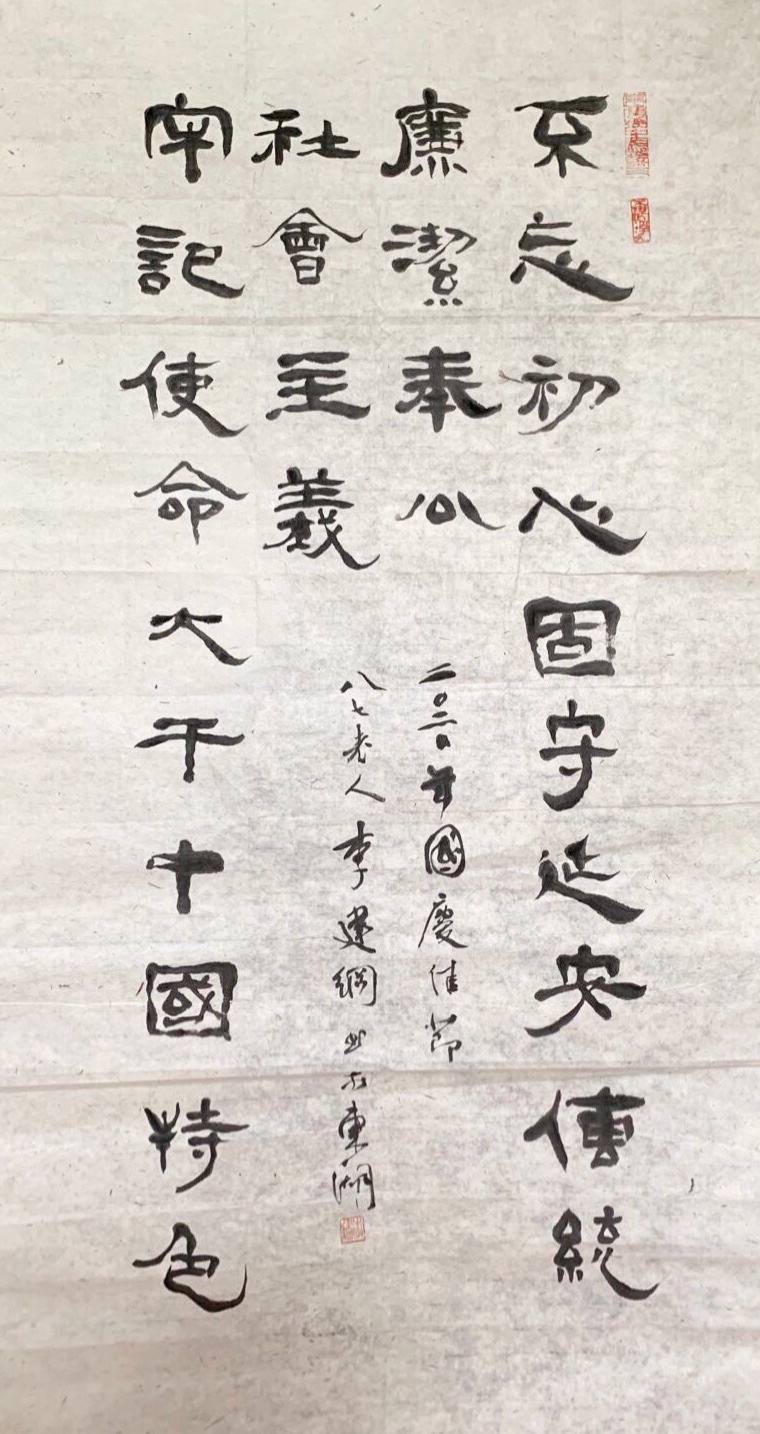 不忘初心固守延安傳統
廉潔奉公
牢記使命大干中國特色
社會主義
二〇二〇年國慶佳節
八七老人李建綱書於東湖